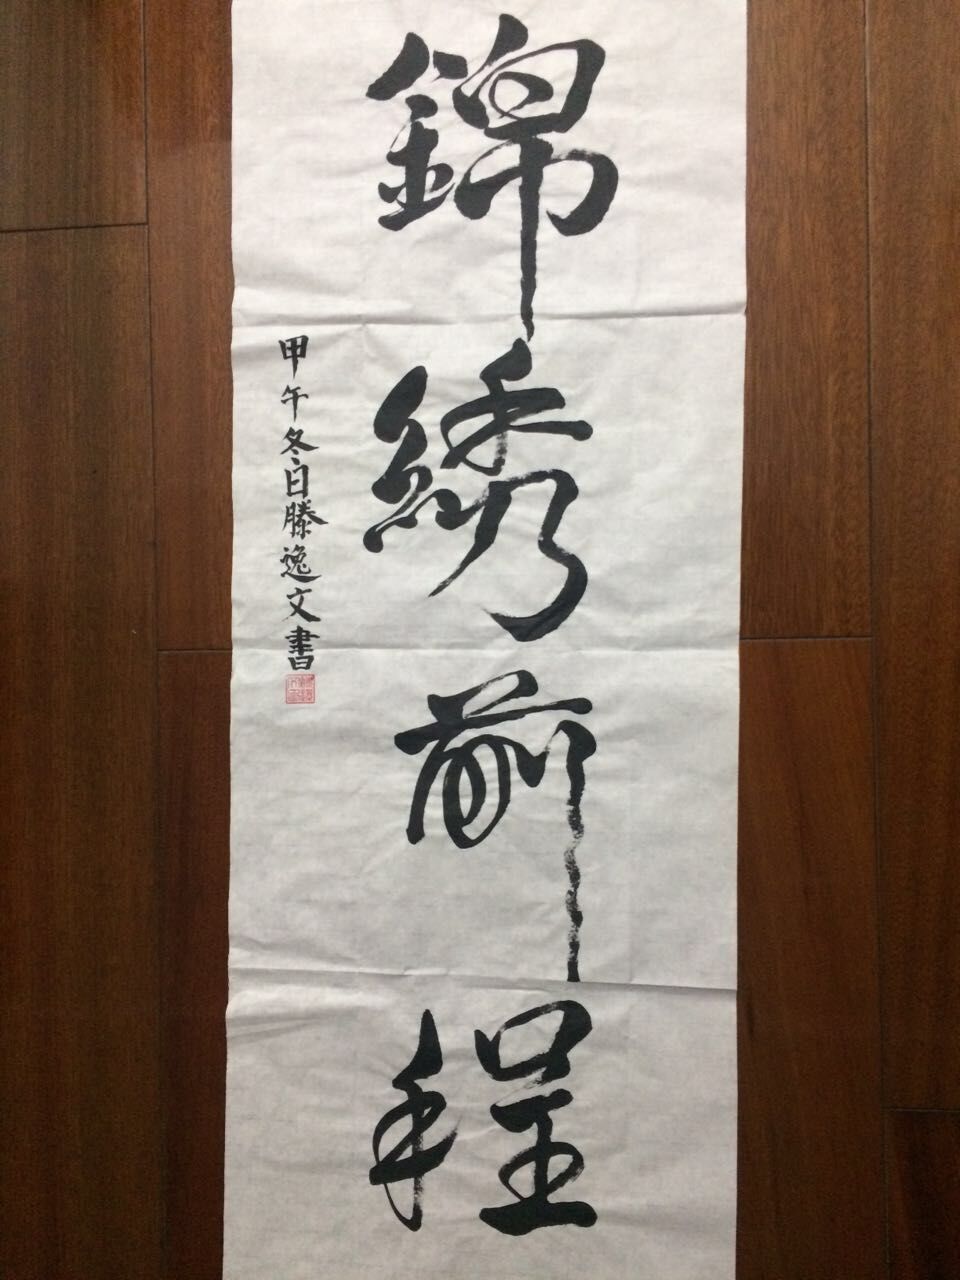 錦綉前程
甲午冬日滕逸文書